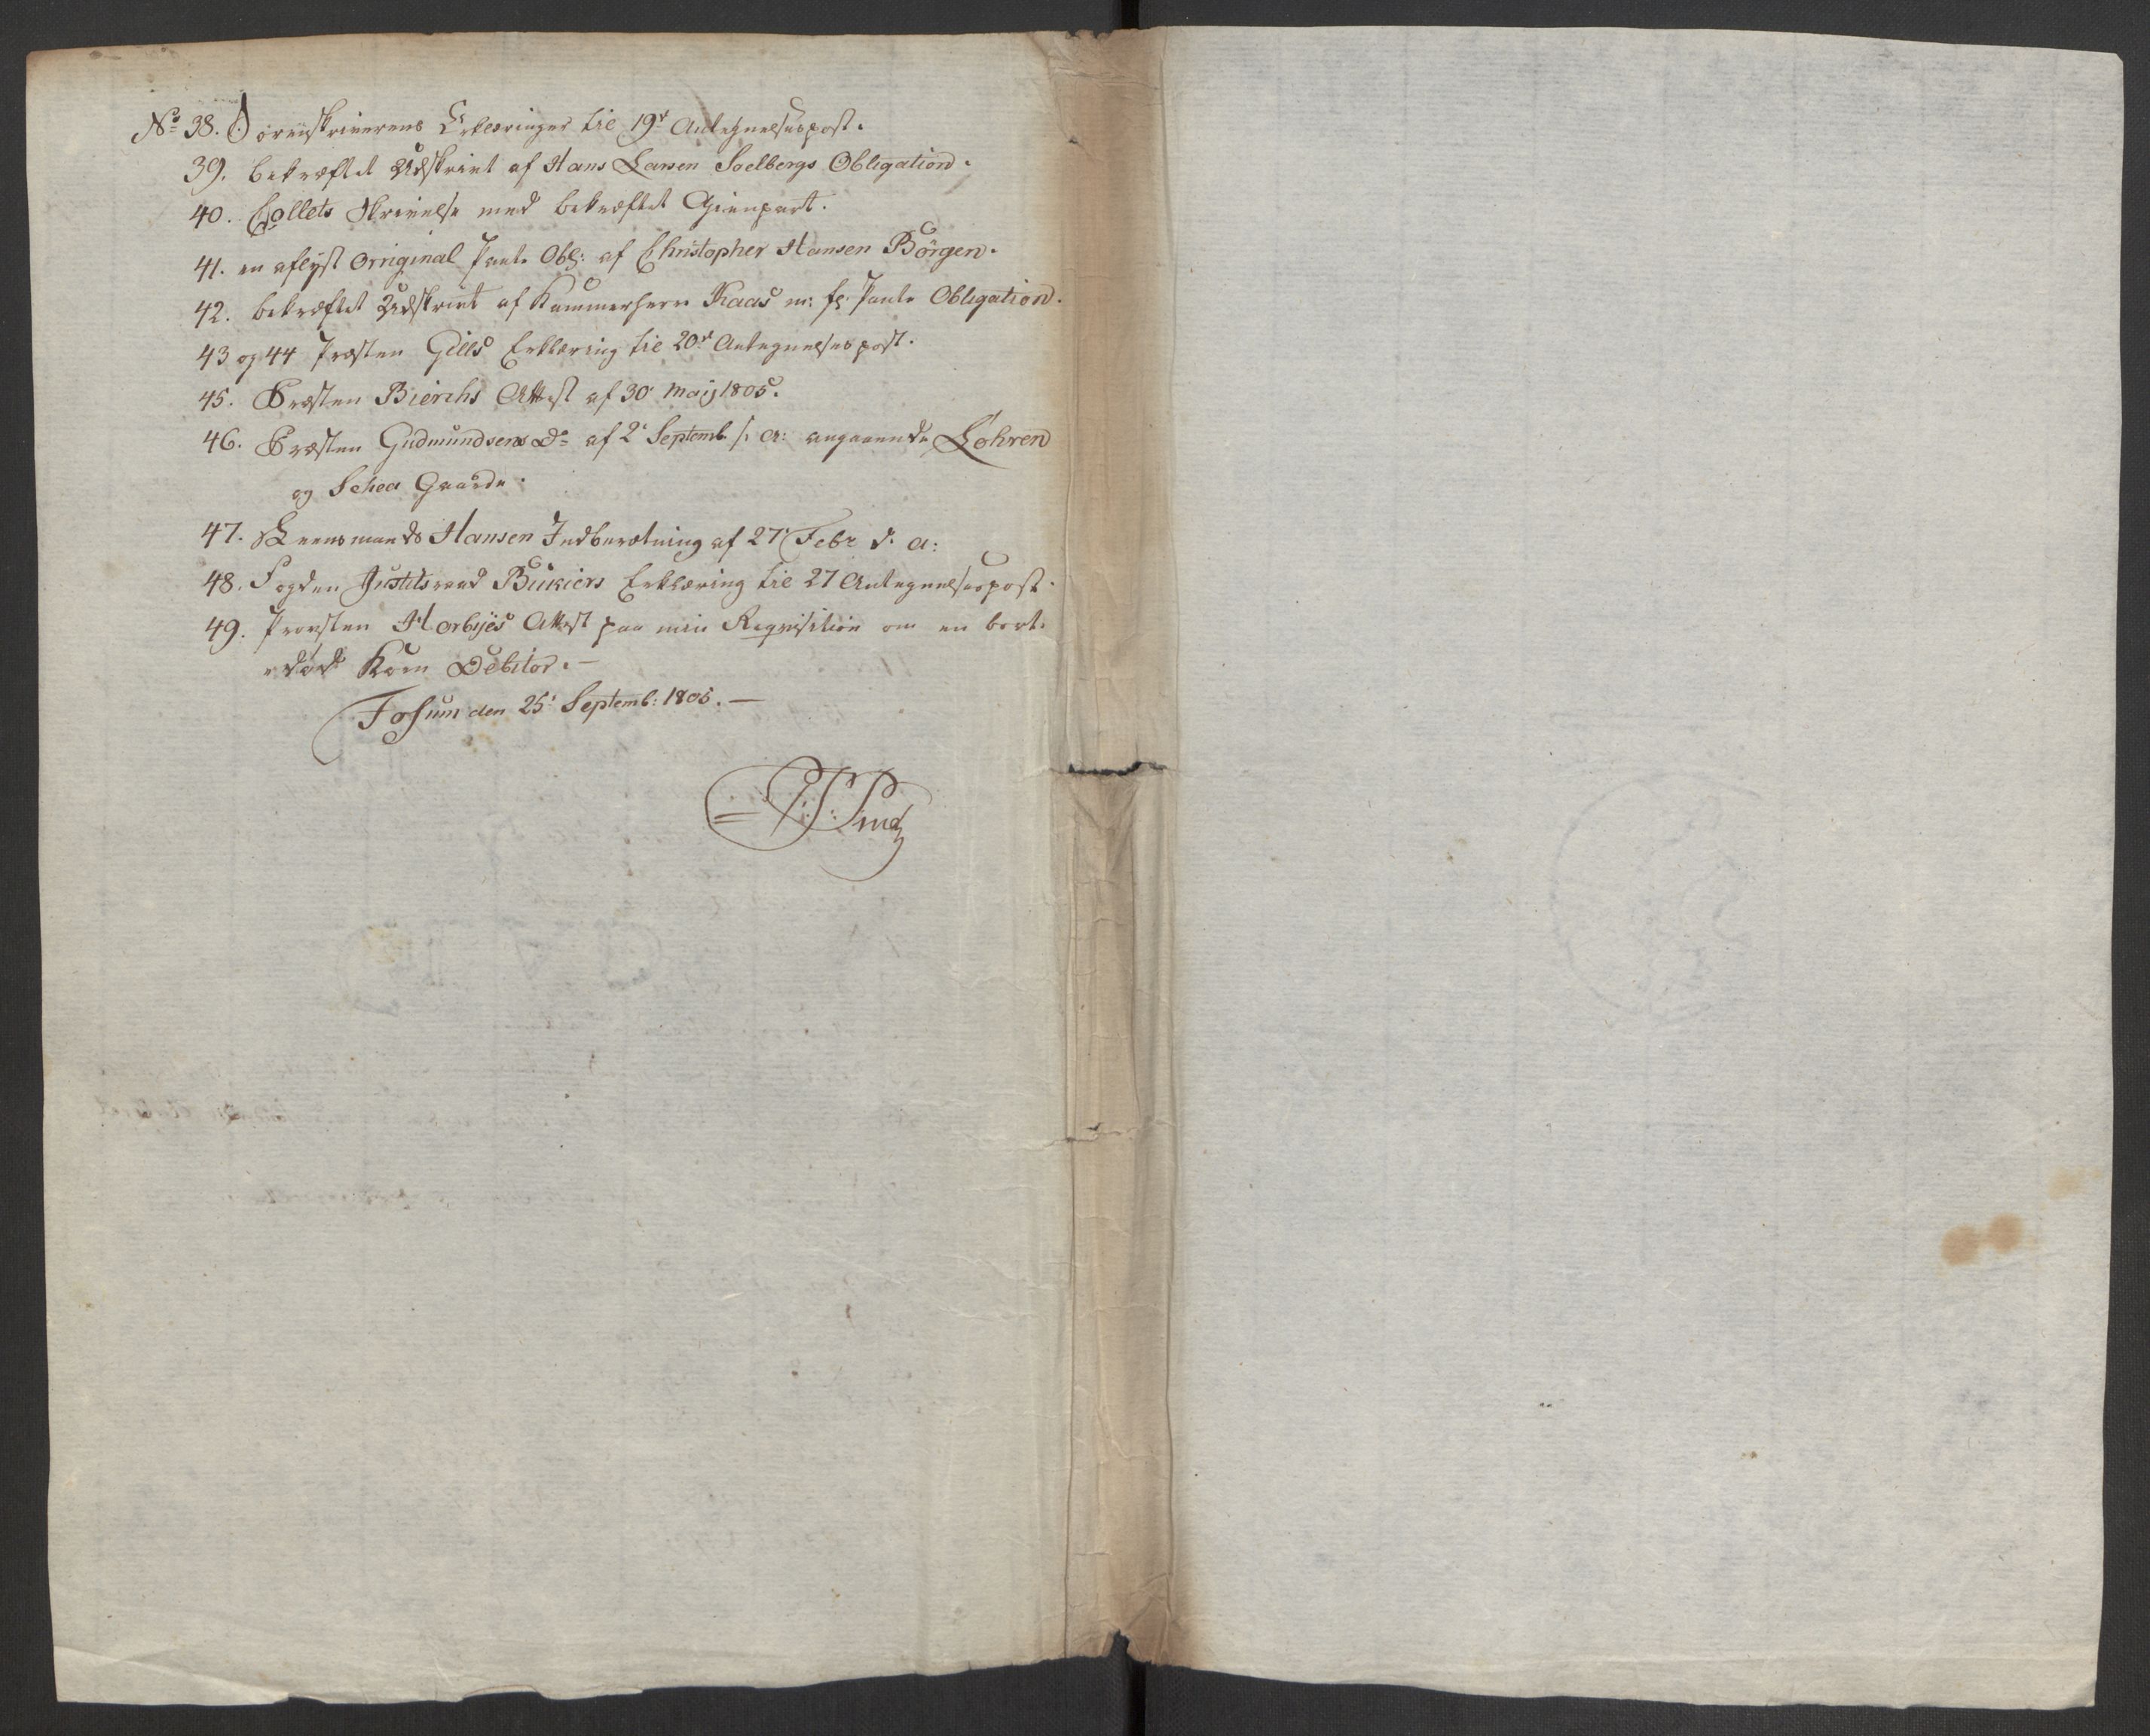 No 38. Sorenskriverens Erklæringer til 19de Antegnelsespost.
39. bekræftet Udskrivt af Hans Larsen Soelbergs Obligation.
40. Collets Skrivelse med bekræftet Gienpart.
41. en aflyst Orriginal Pante Obl: af Christopher Hansen Börgen.
42. bekræftet Udskrivt af Kammerherr Kaas m: fl: Pante Obligation.
43 og 44 Præsten Gills Erklæring til 20de Antegnelsespost.
45. Præsten Bierchs Attest af 30' Maij 1805.
46. Præsten Gudmundsens Do af 2' Septemb. s: a: angaaende Löhren
og Schea Gaarde.
47. Leensmands Hansen Indberetning af 27' Febr d: a:
48. Fogden Justitsraad Bukiers Erklæring til 27 Antegnelsespost.
49. Provsten Horbyes Attest paa min Reqvisition om en bort-
død Korn Debitor.—
Fosum den 25' Septemb: 1805.—